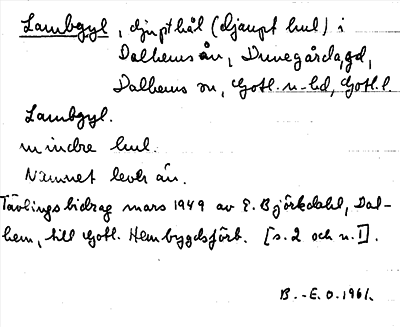 Lambgyl, djupt hål (djaupt hul) i
Dalhemsån, Dune gårda, gd,
Dalhems sn, Gotl. n. hd, Gotl. l.
Lambgyl.
mindre hul.
Namnet levt än.
Tävlingsbidrag mars 1949 av E. Björkdahl, Dal-
hem, till Gotl. Hembygdsförb. [s. 2 och n. I].
B.-E. O. 1961.